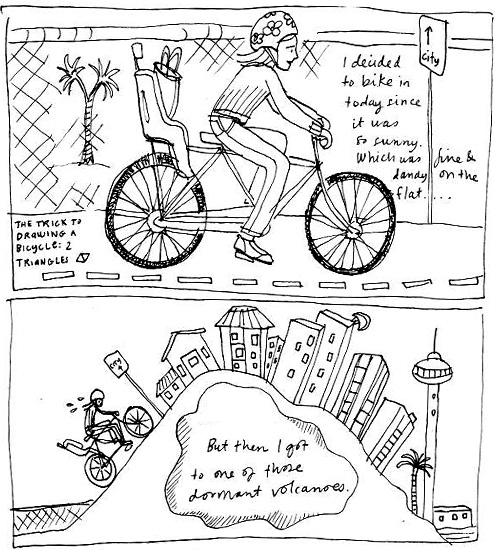 city
I decided
to bike in
today since
it was
so sunny.
Which was fine &
dandy on the
flat....
THE TRICK TO
DRAWING A
BICYCLE: 2
TRIANGLES
CITY
But then I got
to one of those
dormant volcanoes.